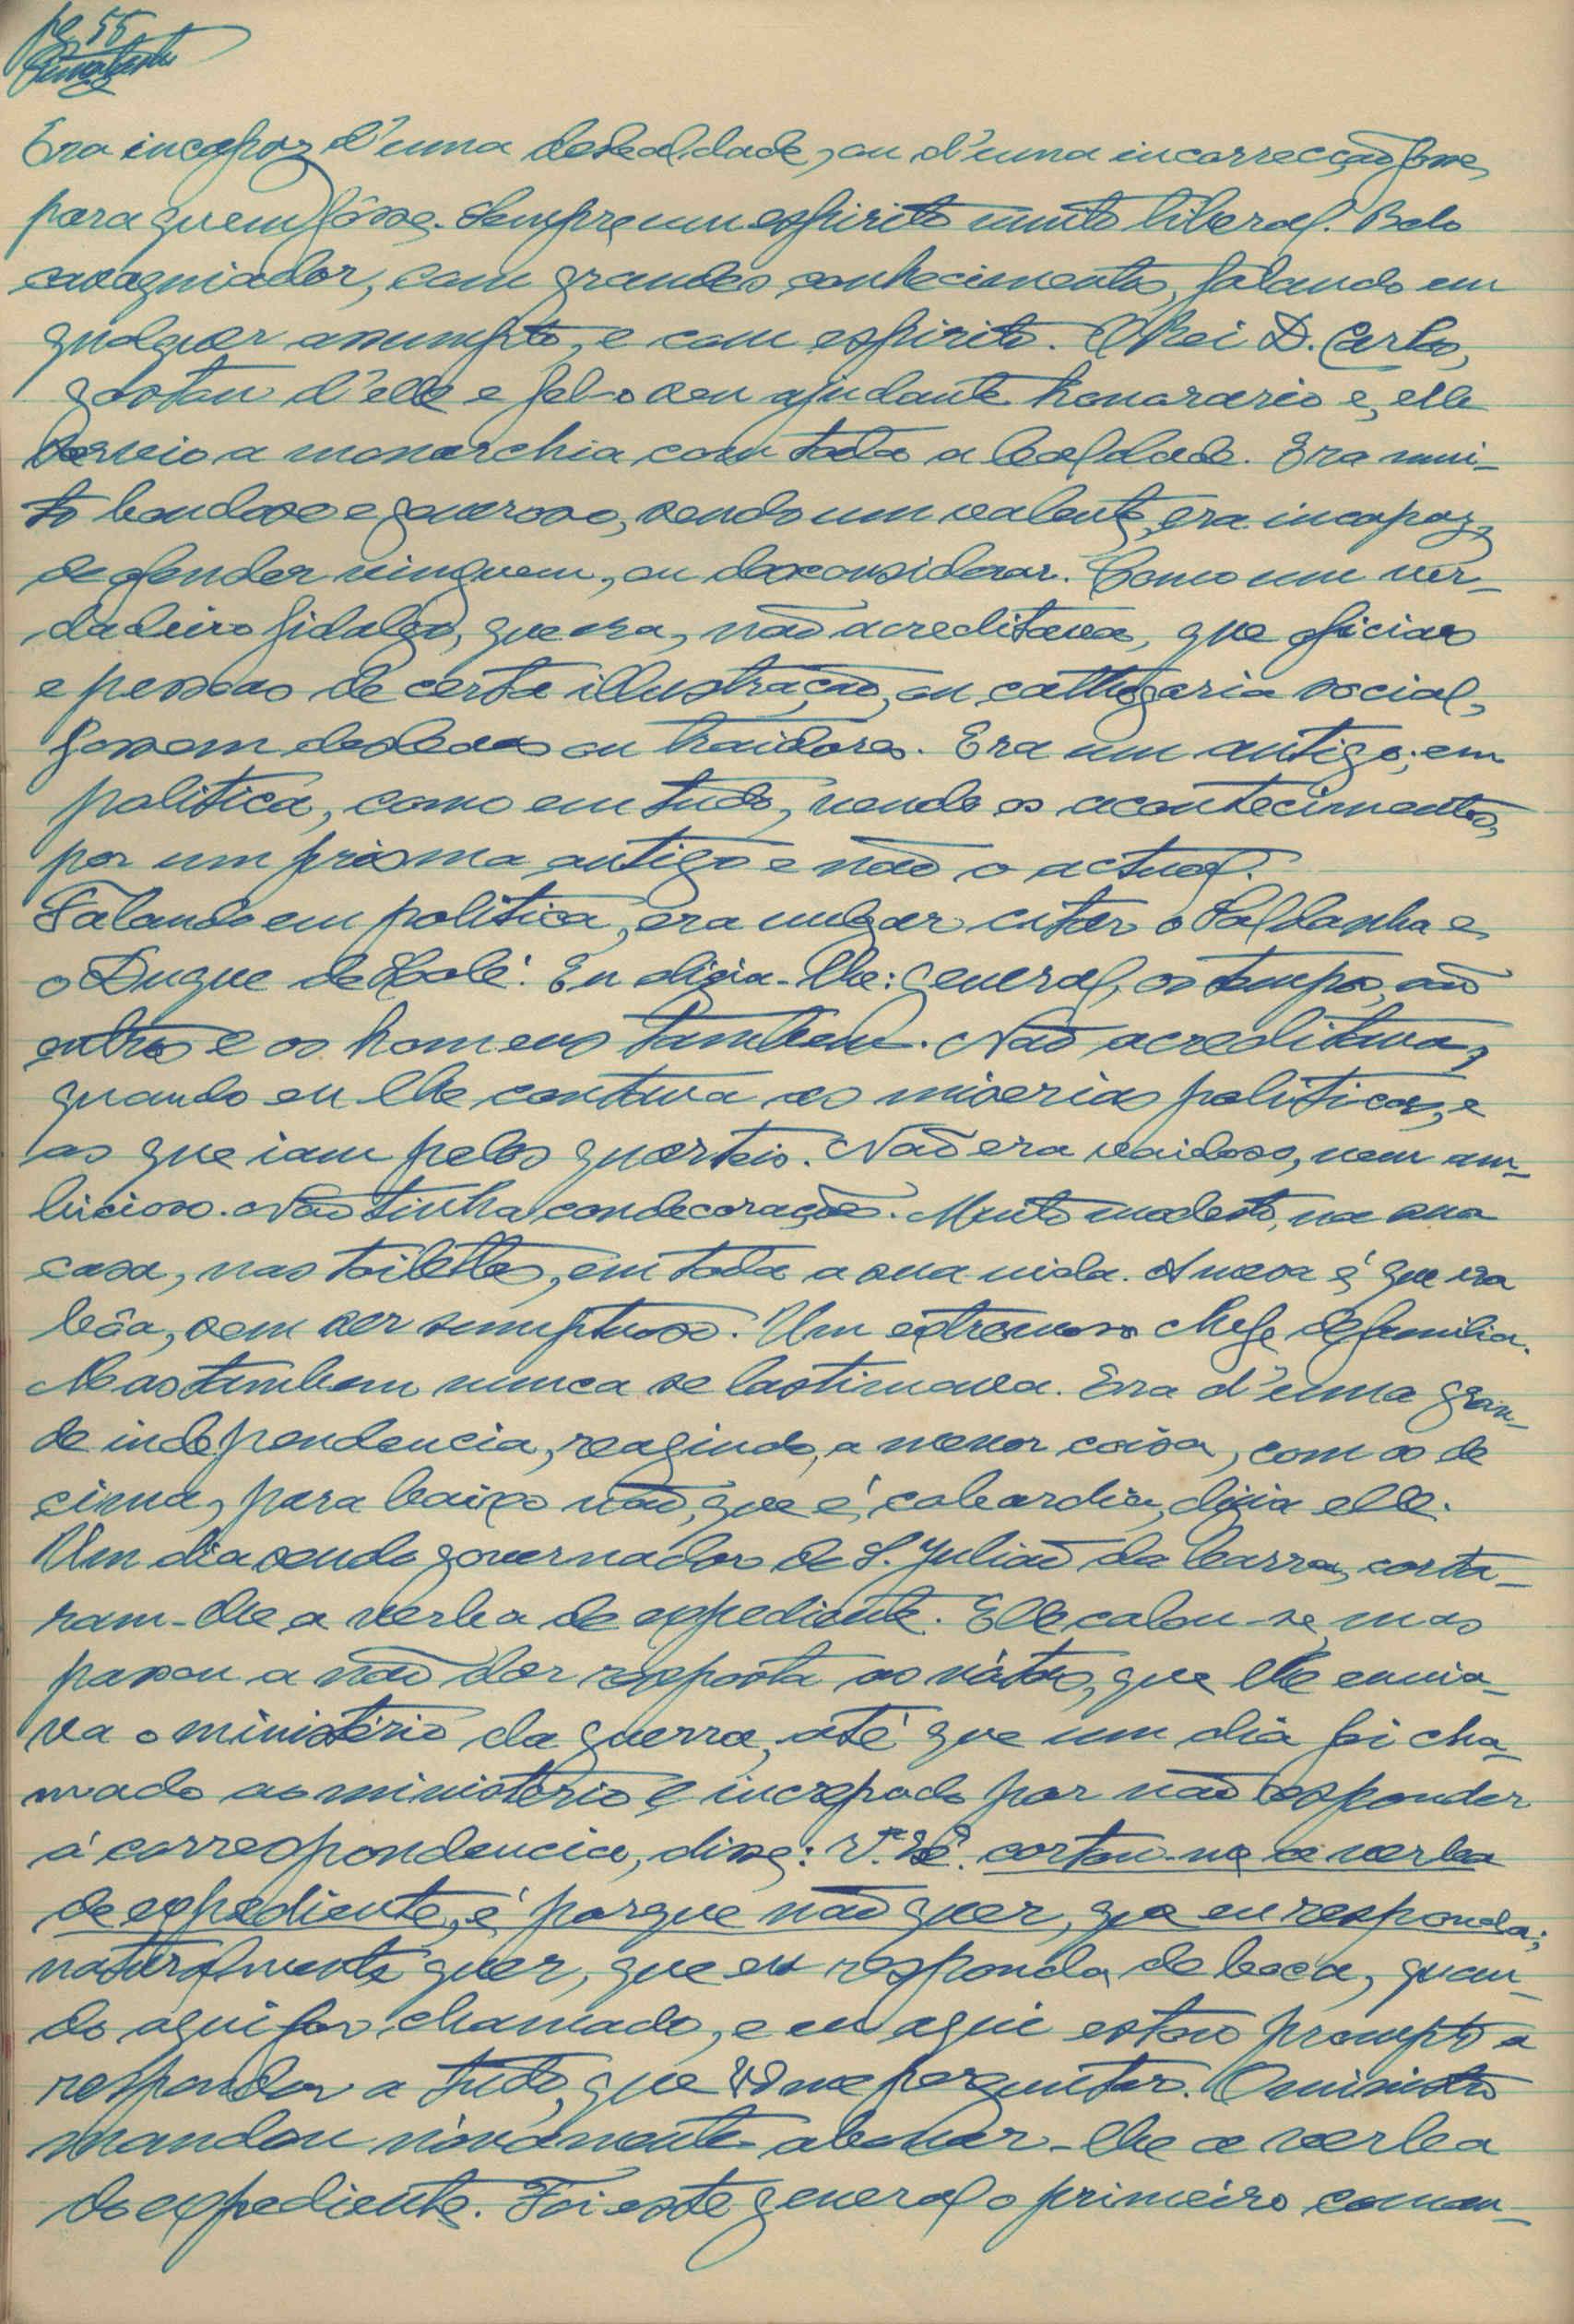 pg 55
Era incapaz d'uma deslealdade, ou d'uma incorrecção fosse,
para quem fôsse. Sempre um espirito muito liberal. Belo
cavaqueador, com grandes conhecimentos, falando em
qualquer assumpto, e com espirito. O Rei D. Carlos,
gostou d'elle e fel-o seu ajudante honorario e, elle
servio a monarchia com toda a lealdade. Era mui-
to bondoso e generoso, sendo um valente, era incapaz,
de ofender ninguem, ou desconsiderar. Como um ver-
dadeiro fidalgo, que era, não acreditava, que oficiaes
e pessoas de certa illustração, ou cathegoria social,
fossem desleaes ou traidores. Era um antigo; em
politica, como em tudo, vendo os acontecimentos,
por um prisma antigo e não o actual.
Falando em politica, era vulgar citar o Saldanha e
o Duque de Loulé. Eu dizia-lhe: general, os tempos, são
outros e os homens tambem. Não acreditava,
quando eu lhe contava as miserias politicas, e
as que iam pelos quarteis. Não era vaidoso, nem am-
bicioso. Não tinha condecorações. Muito modesto, na sua
casa, nas toilettes, em toda a sua vida. A mesa é que era
bôa, sem ser sumptuosa. Um extremoso chefe de familia.
Mas tambem nunca se lastimava. Era d'uma gran-
de independencia, reagindo, a menor coisa, com os de
cima, para baixo não, que é cobardia, dizia elle.
Um dia sendo governador de S. Julião da barra, corta-
ram-lhe a verba de expediente. Elle calou-se, mas
passou a não dar resposta ás nótas, que lhe envia-
va o ministério da guerra, até que um dia foi cha-
mado ao ministerio e increpado por não responder
á correspondencia, disse: V. Exª. cortou-me a verba
de expediente, é porque não quer, que eu responda;
naturalmente quer, que eu responda, de boca, quan-
do aqui for chamado, e eu aqui estou prompto a
responder a tudo, que me perguntar. O ministro
mandou nóvamente abonar-lhe a verba
do expediente. Foi este general o primeiro coman-